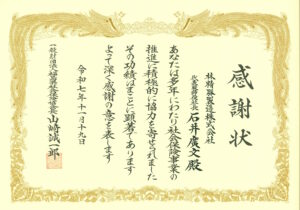 感謝状
林精器製造株式会社
代表取締役社長 石井廣文殿
あなたは多年にわたり社会保険事業の
推進に積極的に協力を寄せられました
その功績はまことに顕著であります
よって深く感謝の意を表します
令和七年十一月十九日
山﨑誠一郎